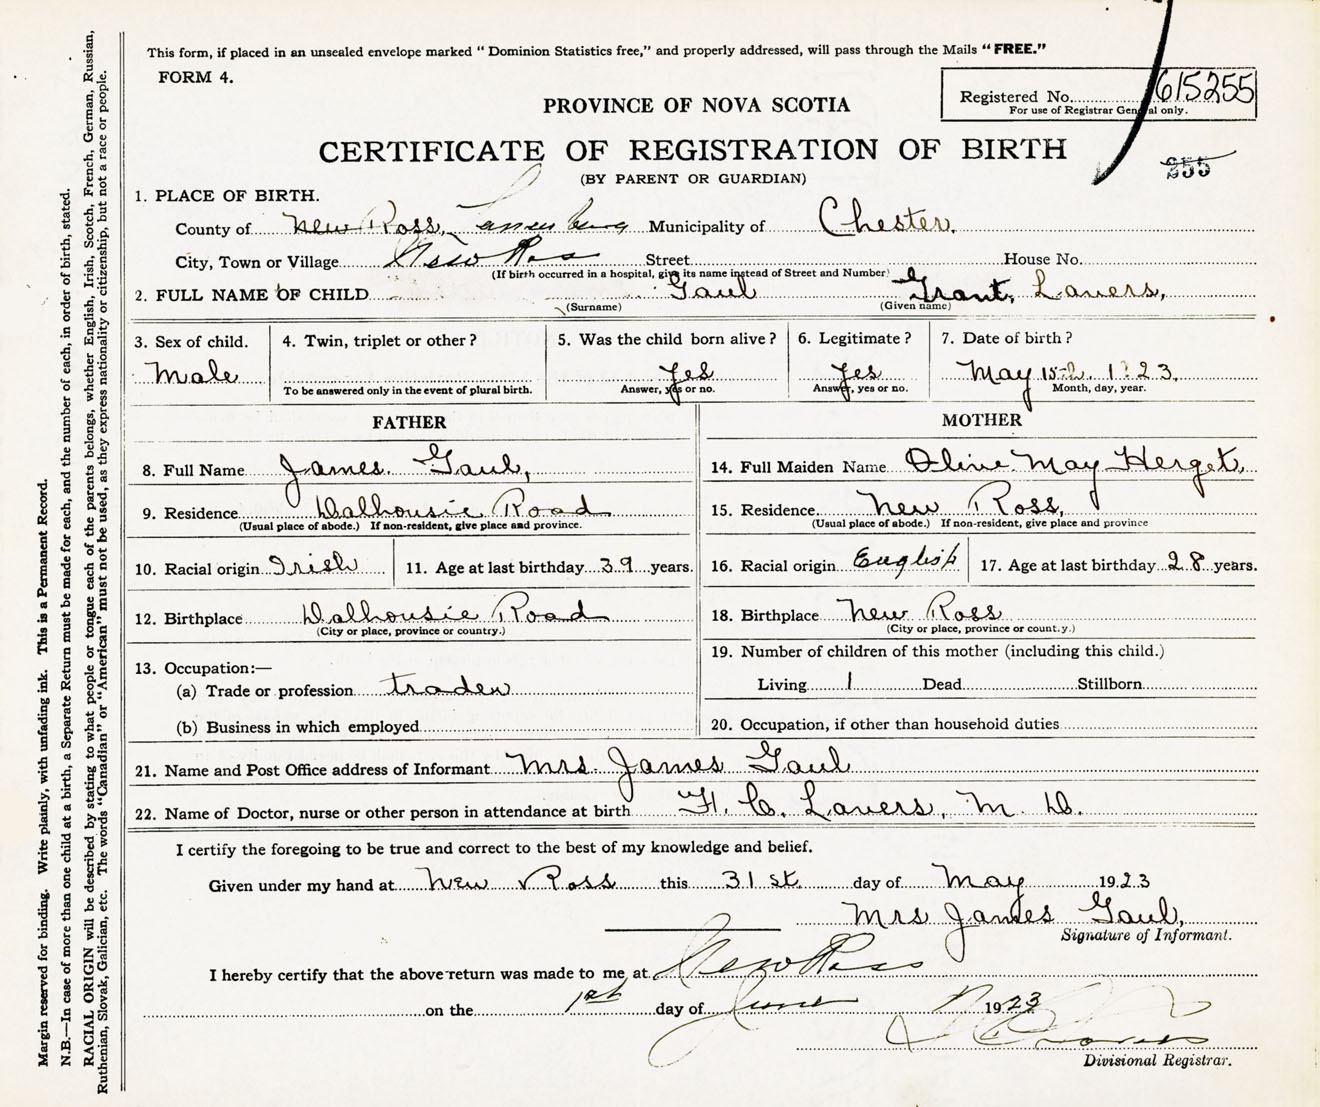 This form, if placed in an unsealed envelope marked "Dominion Statistics free," and properly addressed, will pass through the Mails "FREE."
FORM 4.
Registered No. 615255
For use of Registrar General only.
PROVINCE OF NOVA SCOTIA
CERTIFICATE OF REGISTRATION OF BIRTH
255
(BY PARENT OR GUARDIAN)
1. PLACE OF BIRTH.
County of New Ross, Lunenburg Municipality of Chester.
City, Town or Village New Ross Street House No.
(If birth occurred in a hospital, give its name instead of Street and Number)
2. FULL NAME OF CHILD Gaul Grant, Lavers,
(Surname) (Given name)
3. Sex of child. 4. Twin, triplet or other? 5. Was the child born alive? 6. Legitimate? 7. Date of birth?
Male Yes Yes May 15th. 1923.
To be answered only in the event of plural birth. Answer, yes or no. Answer, yes or no. Month, day, year.
FATHER
8. Full Name James. Gaul,
9. Residence Dalhousie Road
(Usual place of abode.) If non-resident, give place and province.
10. Racial origin Irish 11. Age at last birthday 39 years.
12. Birthplace Dalhousie Road
(City or place, province or country.)
13. Occupation:—
(a) Trade or profession trader
(b) Business in which employed
MOTHER
14. Full Maiden Name Olive May Herget,
15. Residence New Ross,
(Usual place of abode.) If non-resident, give place and province
16. Racial origin English 17. Age at last birthday 28 years.
18. Birthplace New Ross
(City or place, province or country.)
19. Number of children of this mother (including this child.)
Living 1 Dead Stillborn
20. Occupation, if other than household duties
21. Name and Post Office address of Informant Mrs. James Gaul
22. Name of Doctor, nurse or other person in attendance at birth H. C. Lavers, M. D.
I certify the foregoing to be true and correct to the best of my knowledge and belief.
Given under my hand at New Ross this 31st. day of May 1923
Mrs James Gaul,
Signature of Informant.
I hereby certify that the above return was made to me at New Ross
on the 1st day of June 1923
Divisional Registrar.
Margin reserved for binding. Write plainly, with unfading ink. This is a Permanent Record.
N.B.—In case of more than one child at a birth, a Separate Return must be made for each, and the number of each, in order of birth, stated.
RACIAL ORIGIN will be described by stating to what people or tongue each of the parents belongs, whether English, Irish, Scotch, French, German, Russian,
Ruthenian, Slovak, Galician, etc. The words "Canadian" or "American" must not be used, as they express nationality or citizenship, but not a race or people.